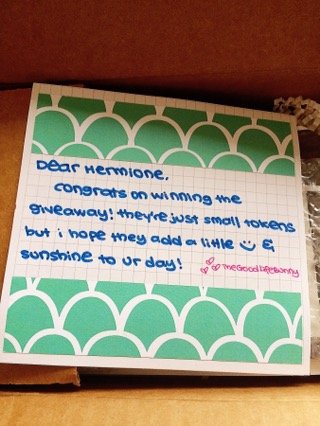 Dear Hermione,
congrats on winning the
giveaway! they're just small tokens
but i hope they add a little ☺ &
sunshine to ur day!
♡♡♡ TheGoodLifeBunny